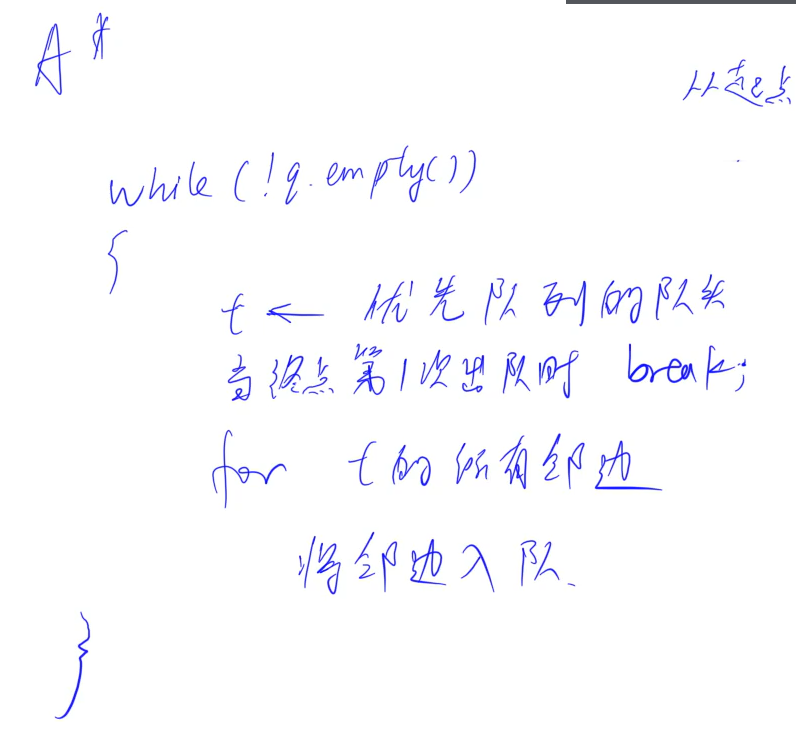 A*
从起点
while (!q.empty())
{
t ← 优先队列的队头
当终点第1次出队时 break;
for t的所有邻边
将邻边入队.
}